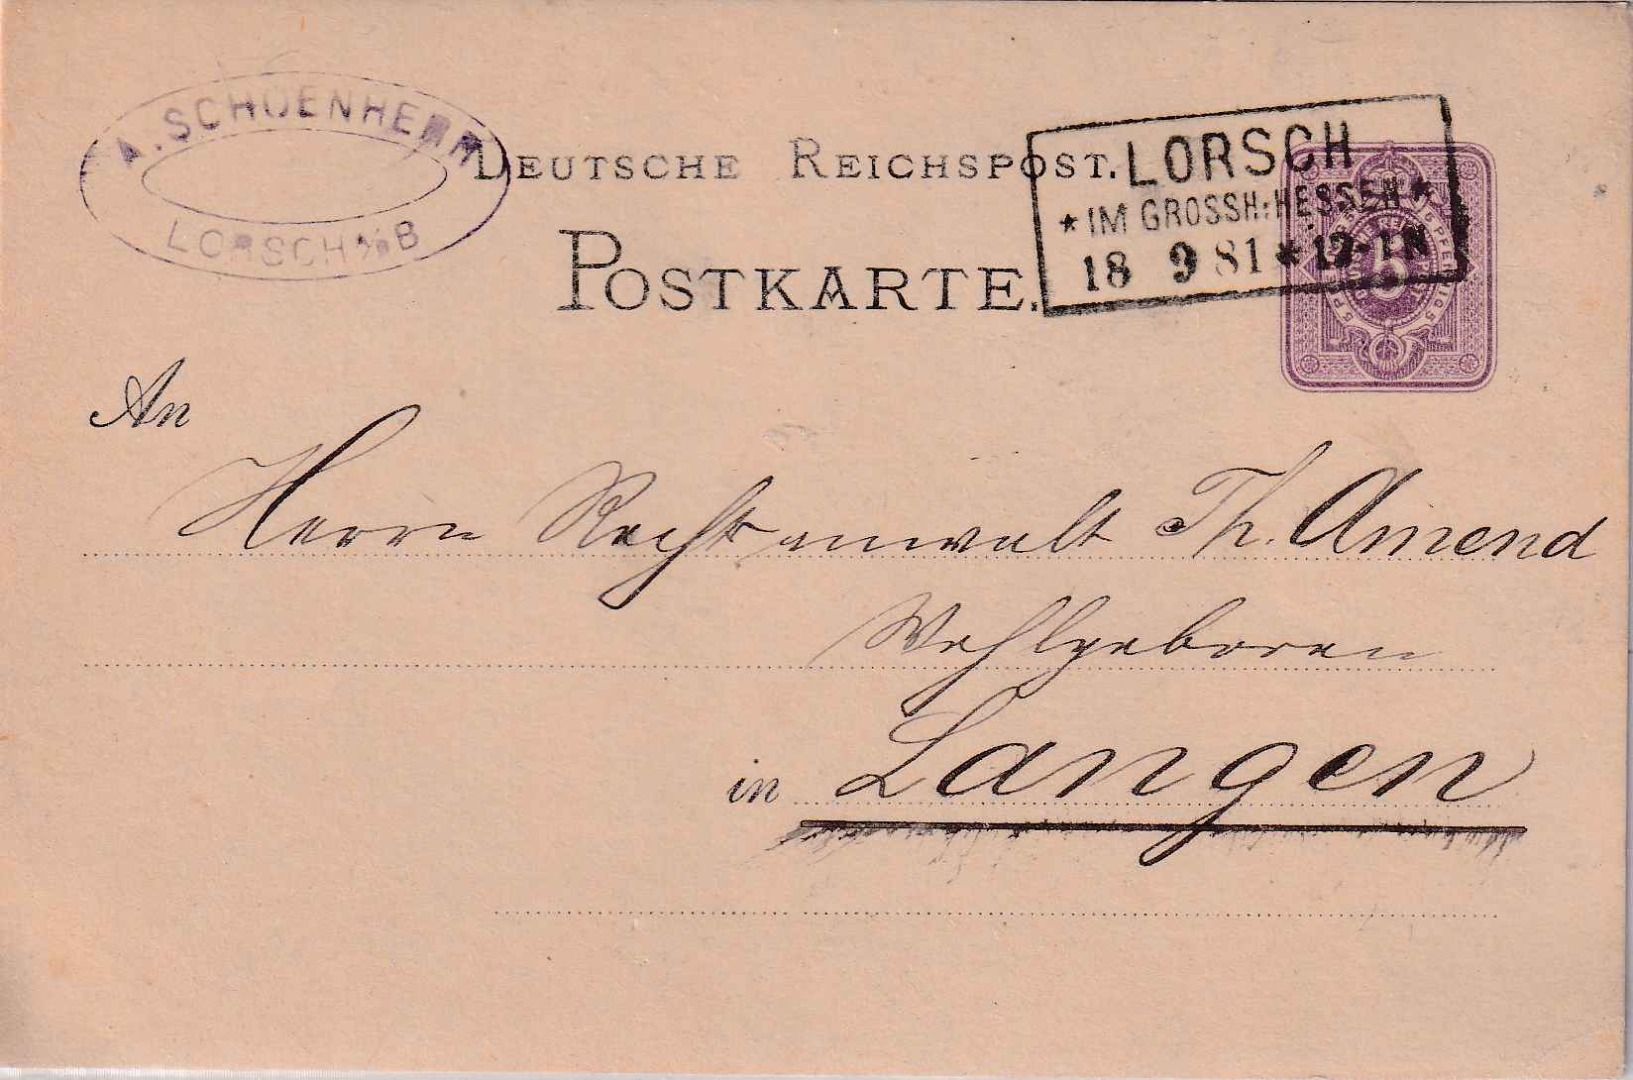 A. SCHOENHERR
LORSCH a/B
DEUTSCHE REICHSPOST.
LORSCH
* IM GROSSH: HESSEN *
18 9 81 * 12-1 N
POSTKARTE.
5
An
Herrn Rechtsanwalt Th. Amend
Wohlgeboren
in Langen